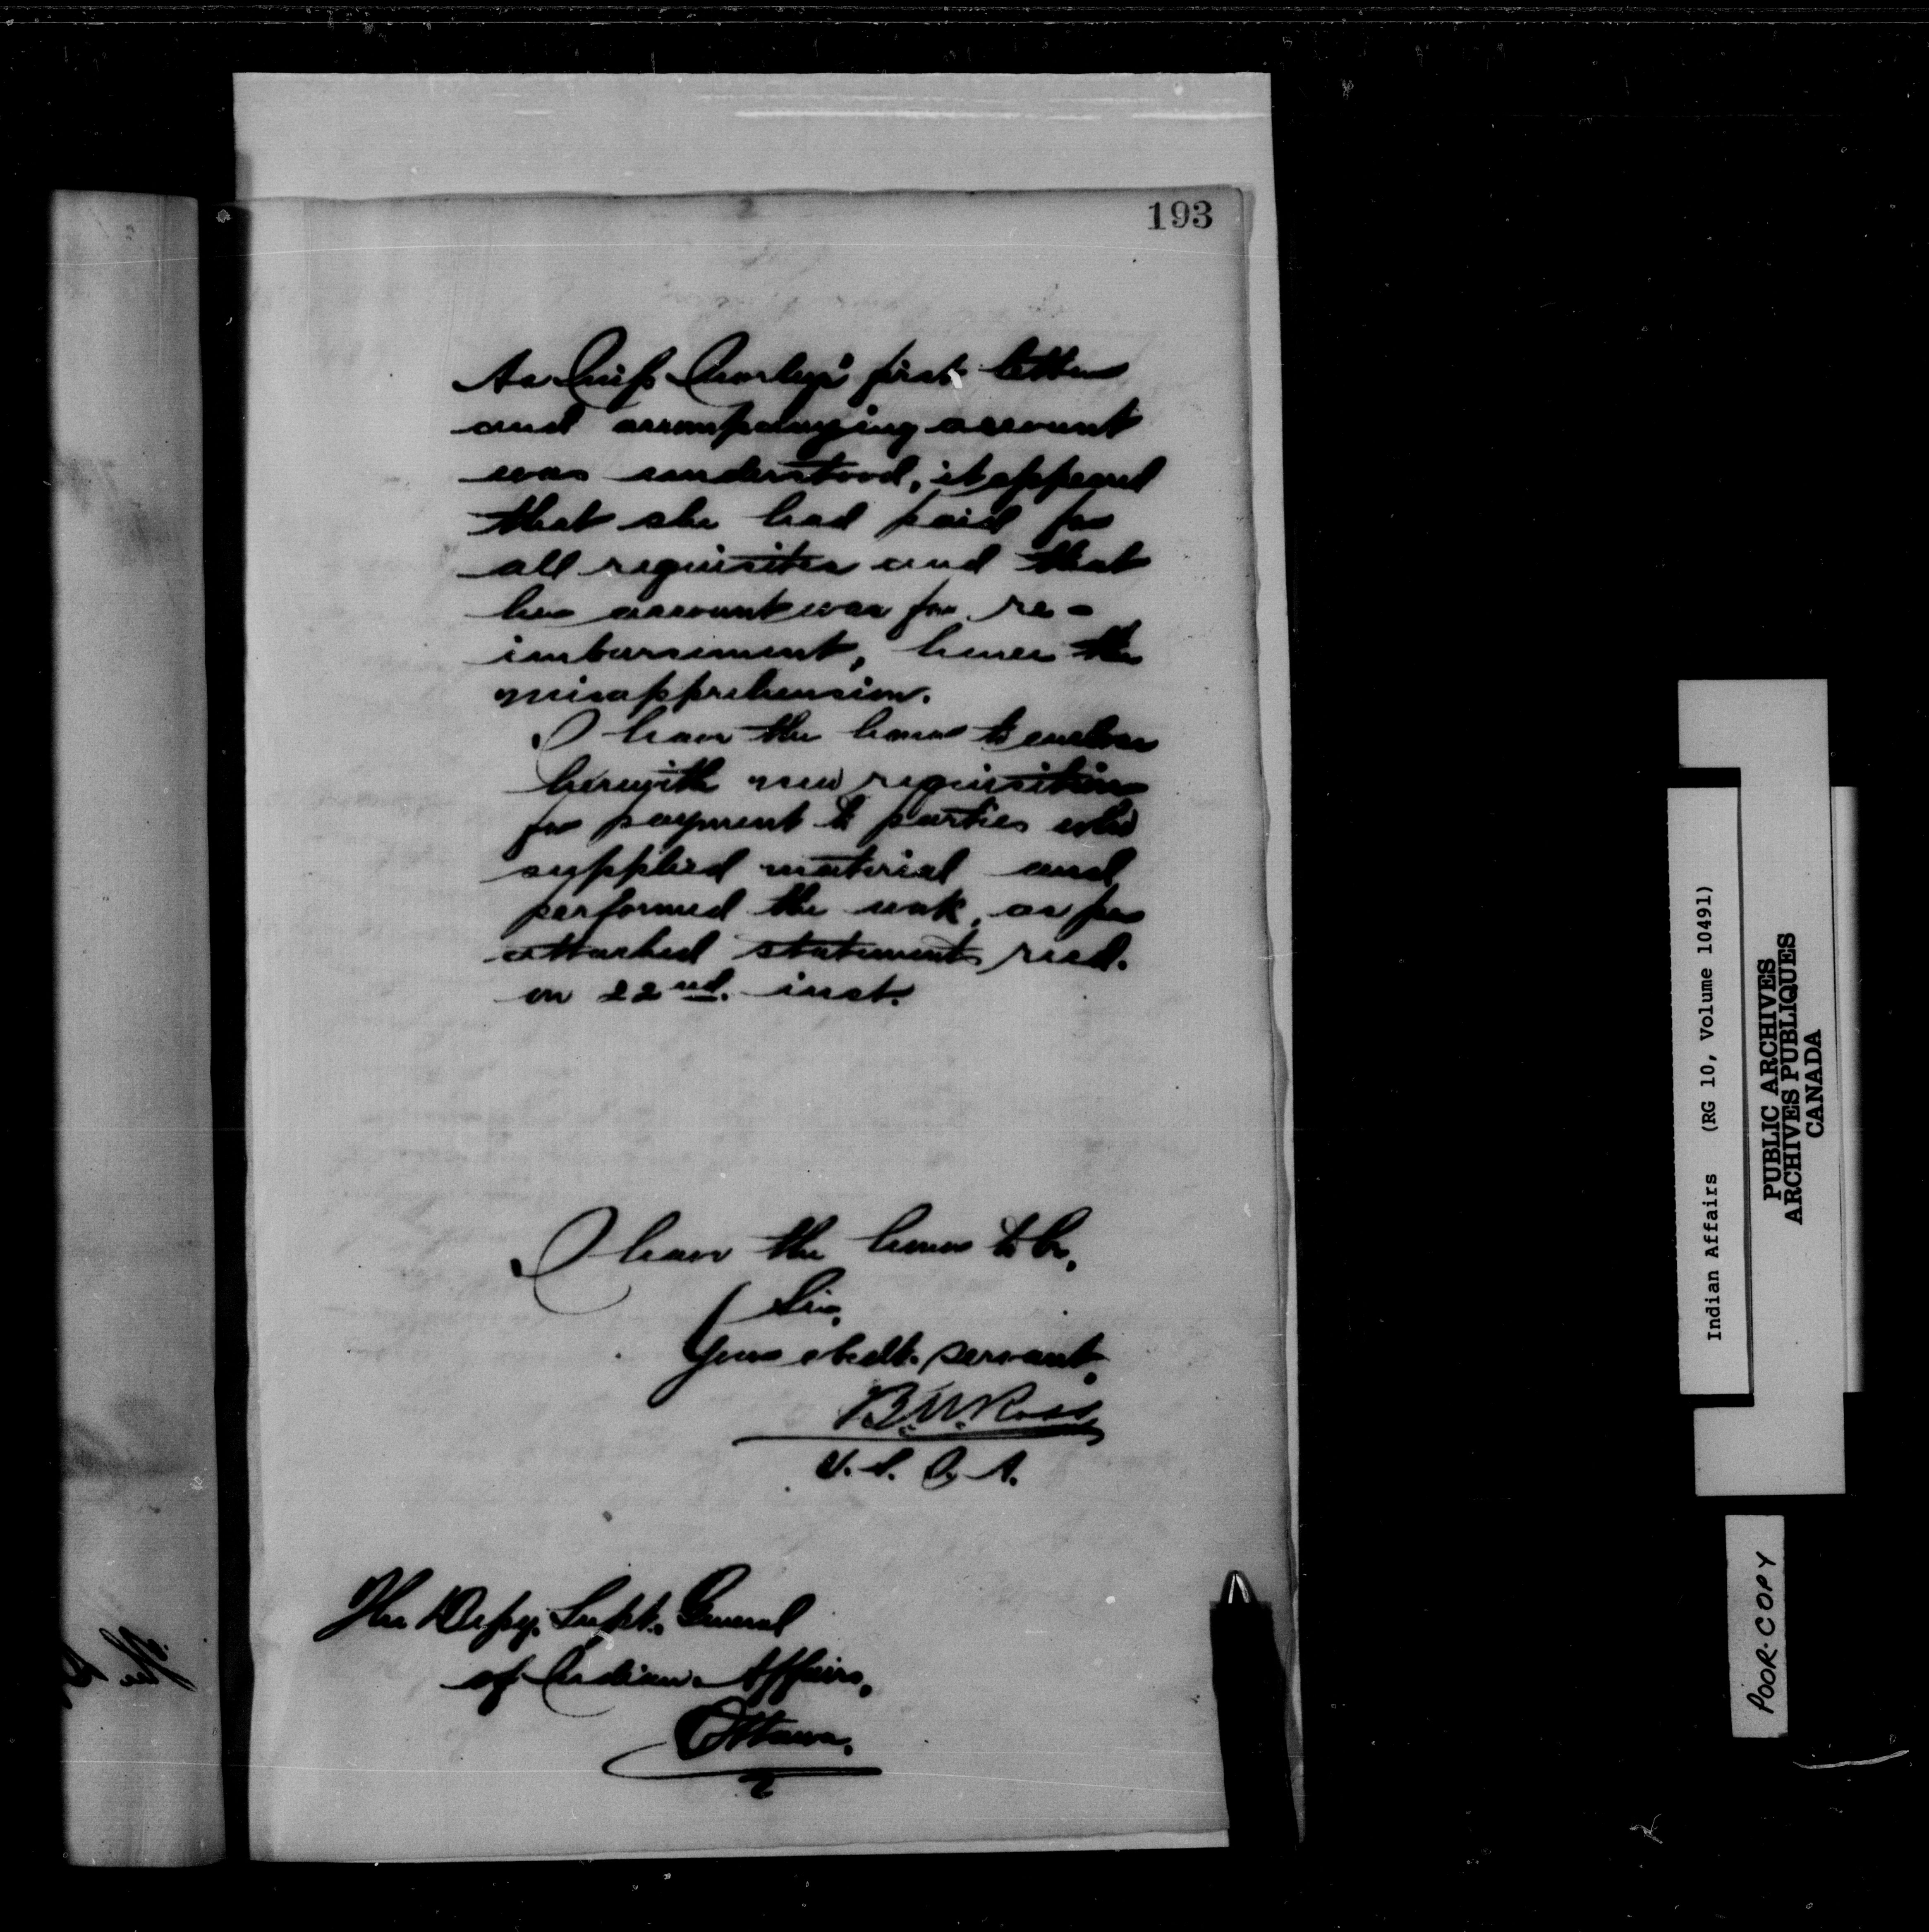 193
As Miss Corley's first letter
and accompanying account
was understood, it appeared
that she had paid for
all requisites and that
her account was for re-
imbursement, hence the
misapprehension.
I have the honor to enclose
herewith new requisition
for payment to parties who
supplied material and
performed the work, as per
attached statement recd.
on 22nd. inst.
I have the honor to be,
Sir,
Your obedt. servant,
B. W. Ross
The Depy. Supt. General
of Indian Affairs,
Ottawa.
Indian Affairs (RG 10, Volume 10491)
PUBLIC ARCHIVES
ARCHIVES PUBLIQUES
CANADA
POOR COPY